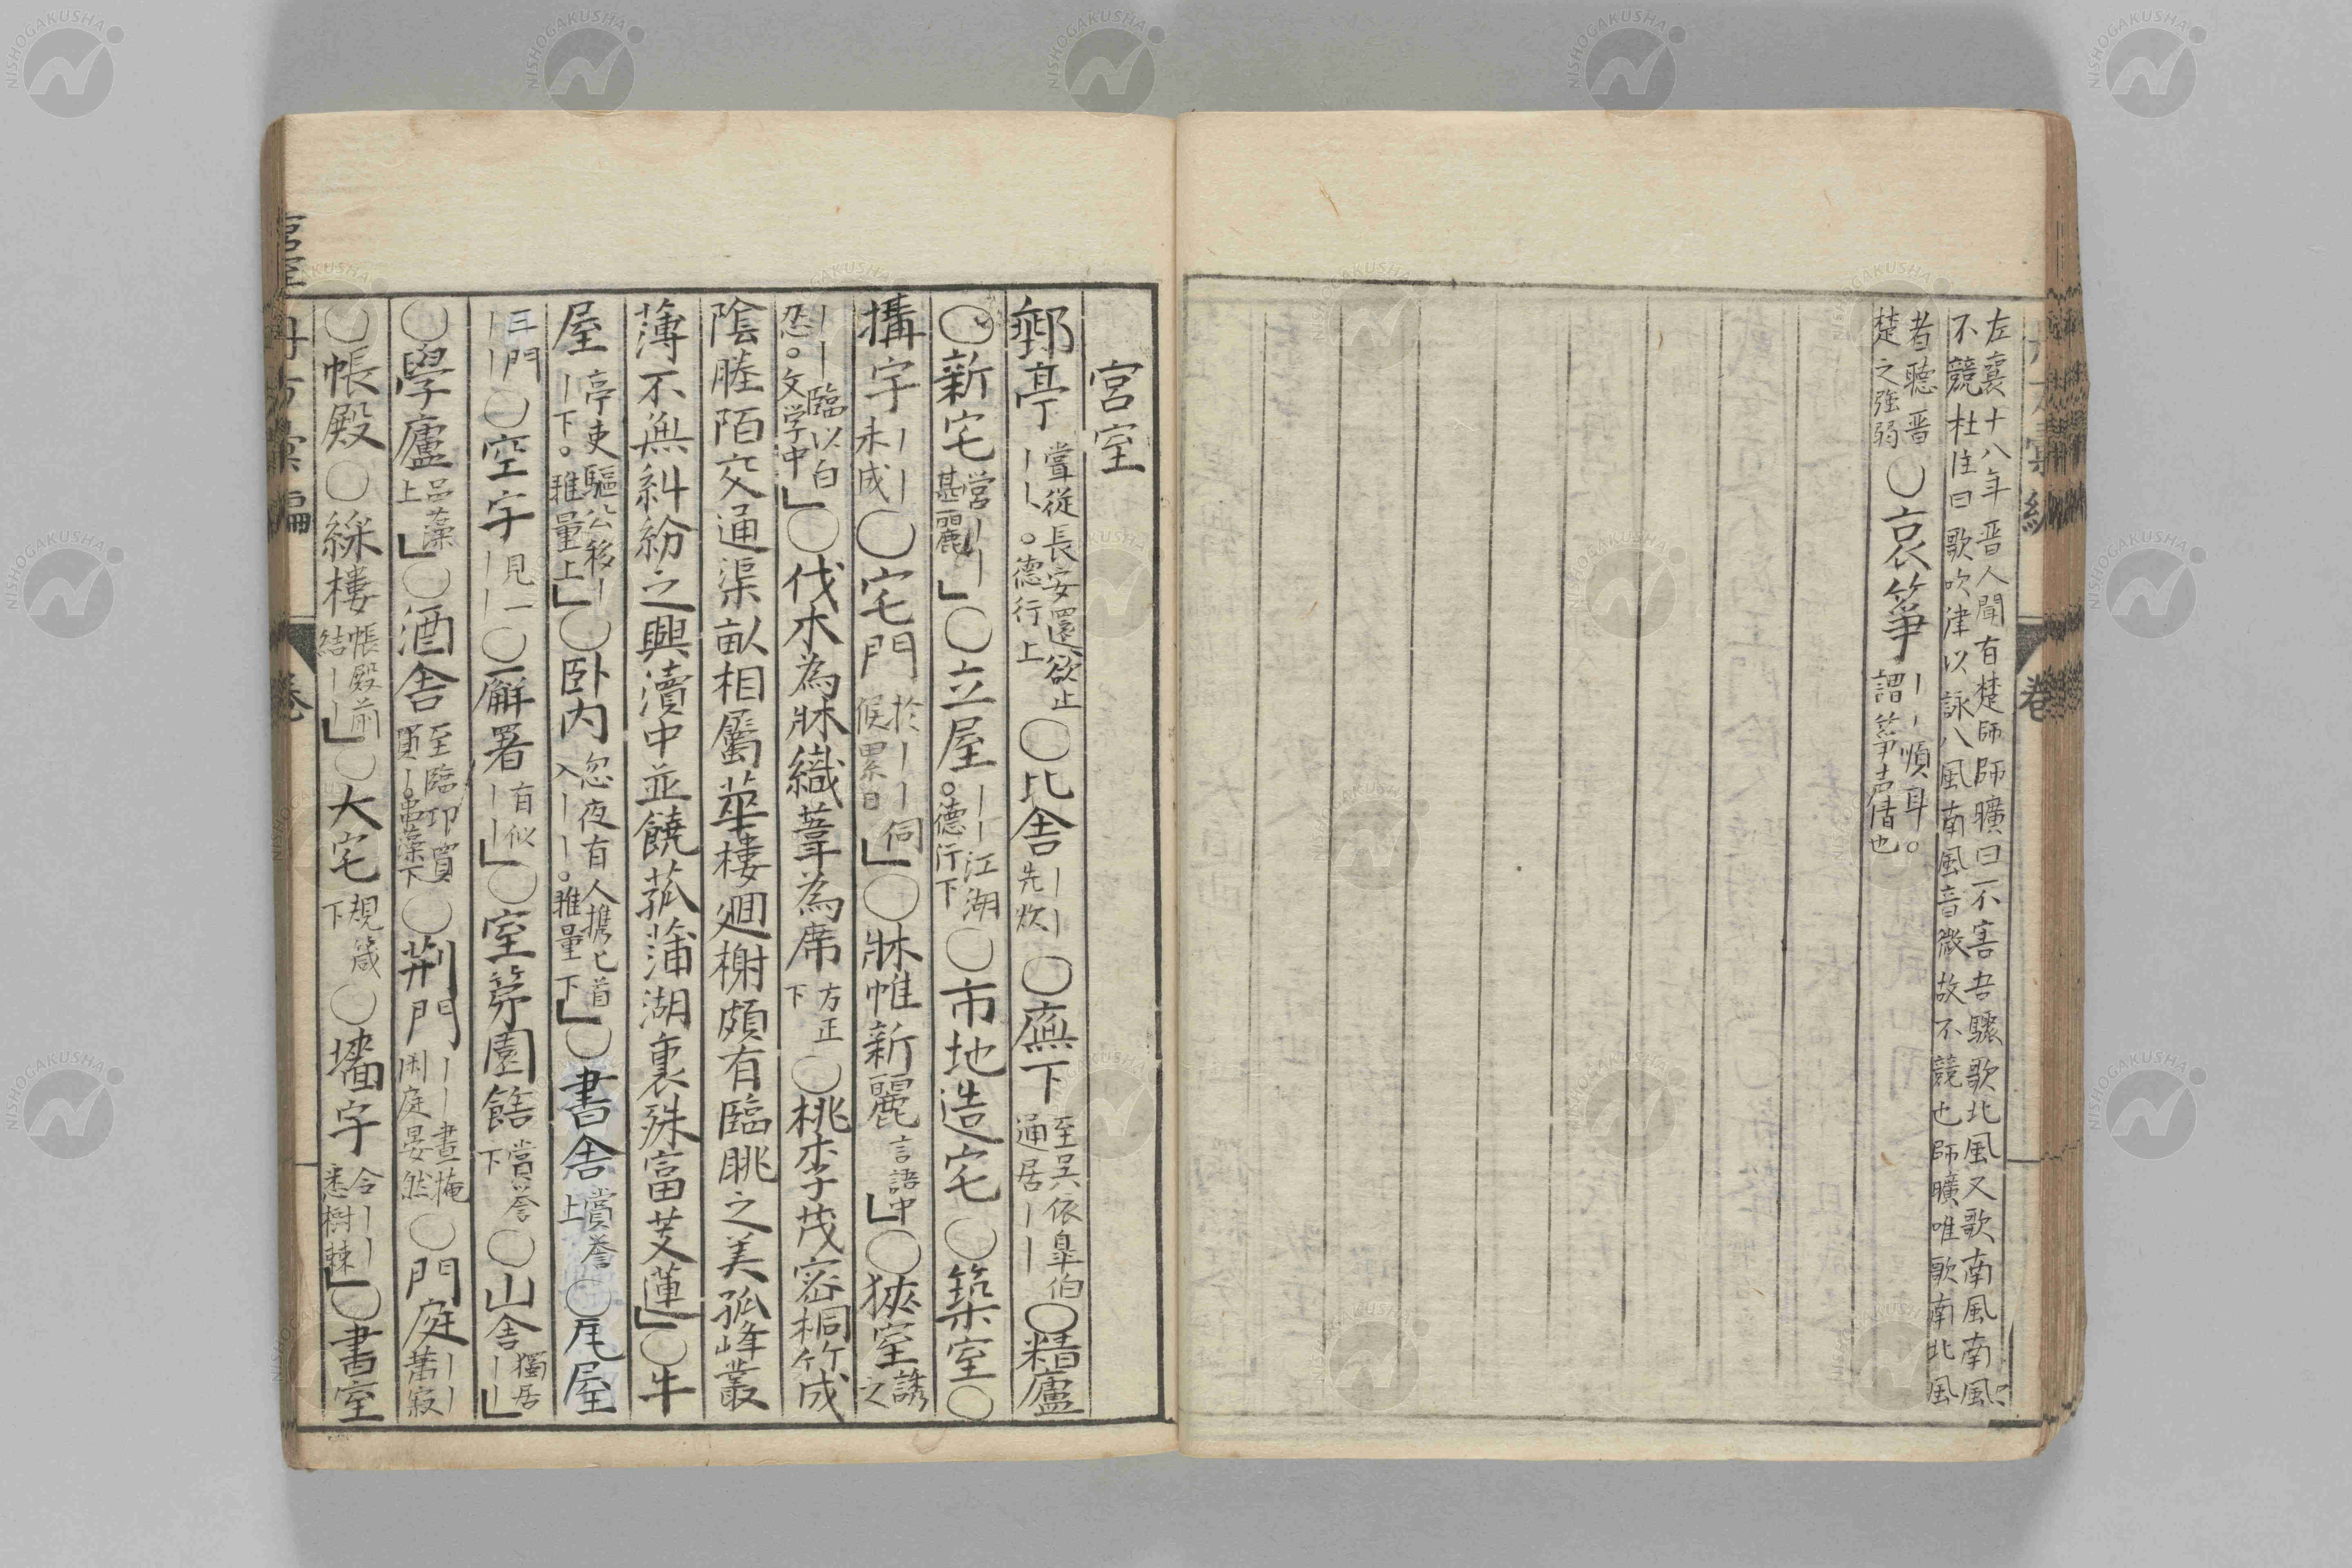 左襄十八年晋人聞有楚師師曠曰不害吾驟歌北風又歌南風南風
不競杜注曰歌吹律以詠八風南風音微故不競也師曠唯歌南北風
者聽晋
楚之強弱
○哀箏
丨丨順耳。
謂箏声清也
宮室
郵亭
嘗従長安還欲止
丨丨。德行上
○比舍
丨丨
先炊
○廡下
至吳依皐伯
通居丨丨
○精廬
○新宅
営丨丨
甚麗
○立屋
丨丨江湖
。德行下
○市地造宅○築室○
搆宇
丨丨
未成
○宅門
於丨丨伺
候累日
○牀帷新麗
言語中
○狹室
誘
之
丨丨臨以白
忍。文学中
○伐木為牀織葦為席
方正
下
○桃李茂密桐竹成
陰塍陌交通渠畎相屬華樓迴榭頗有臨眺之美孤峰叢
薄不無糾紛之興瀆中並饒菰蒲湖裏殊富芰蓮○牛
屋
亭吏驅公移丨
丨下。雅量上
○卧内
忽夜有人携匕首
入丨丨。雅量下
○書舍
賞誉
上
○尾屋
三門
丨丨
○空宇
見一
丨丨
○廨署
有似
丨丨
○室第園館
賞誉
下
○山舍
獨居
丨丨
○學廬
品藻
上
○酒舍
至臨卭買
買丨。品藻下
○荆門
丨丨晝掩
閑庭晏然
○門庭
丨丨
蕭寂
○帳殿○綵樓
帳殿前
結丨丨
○大宅
規箴
下
○墻宇
令丨丨
悉樹棘
○書室
宮室 卷